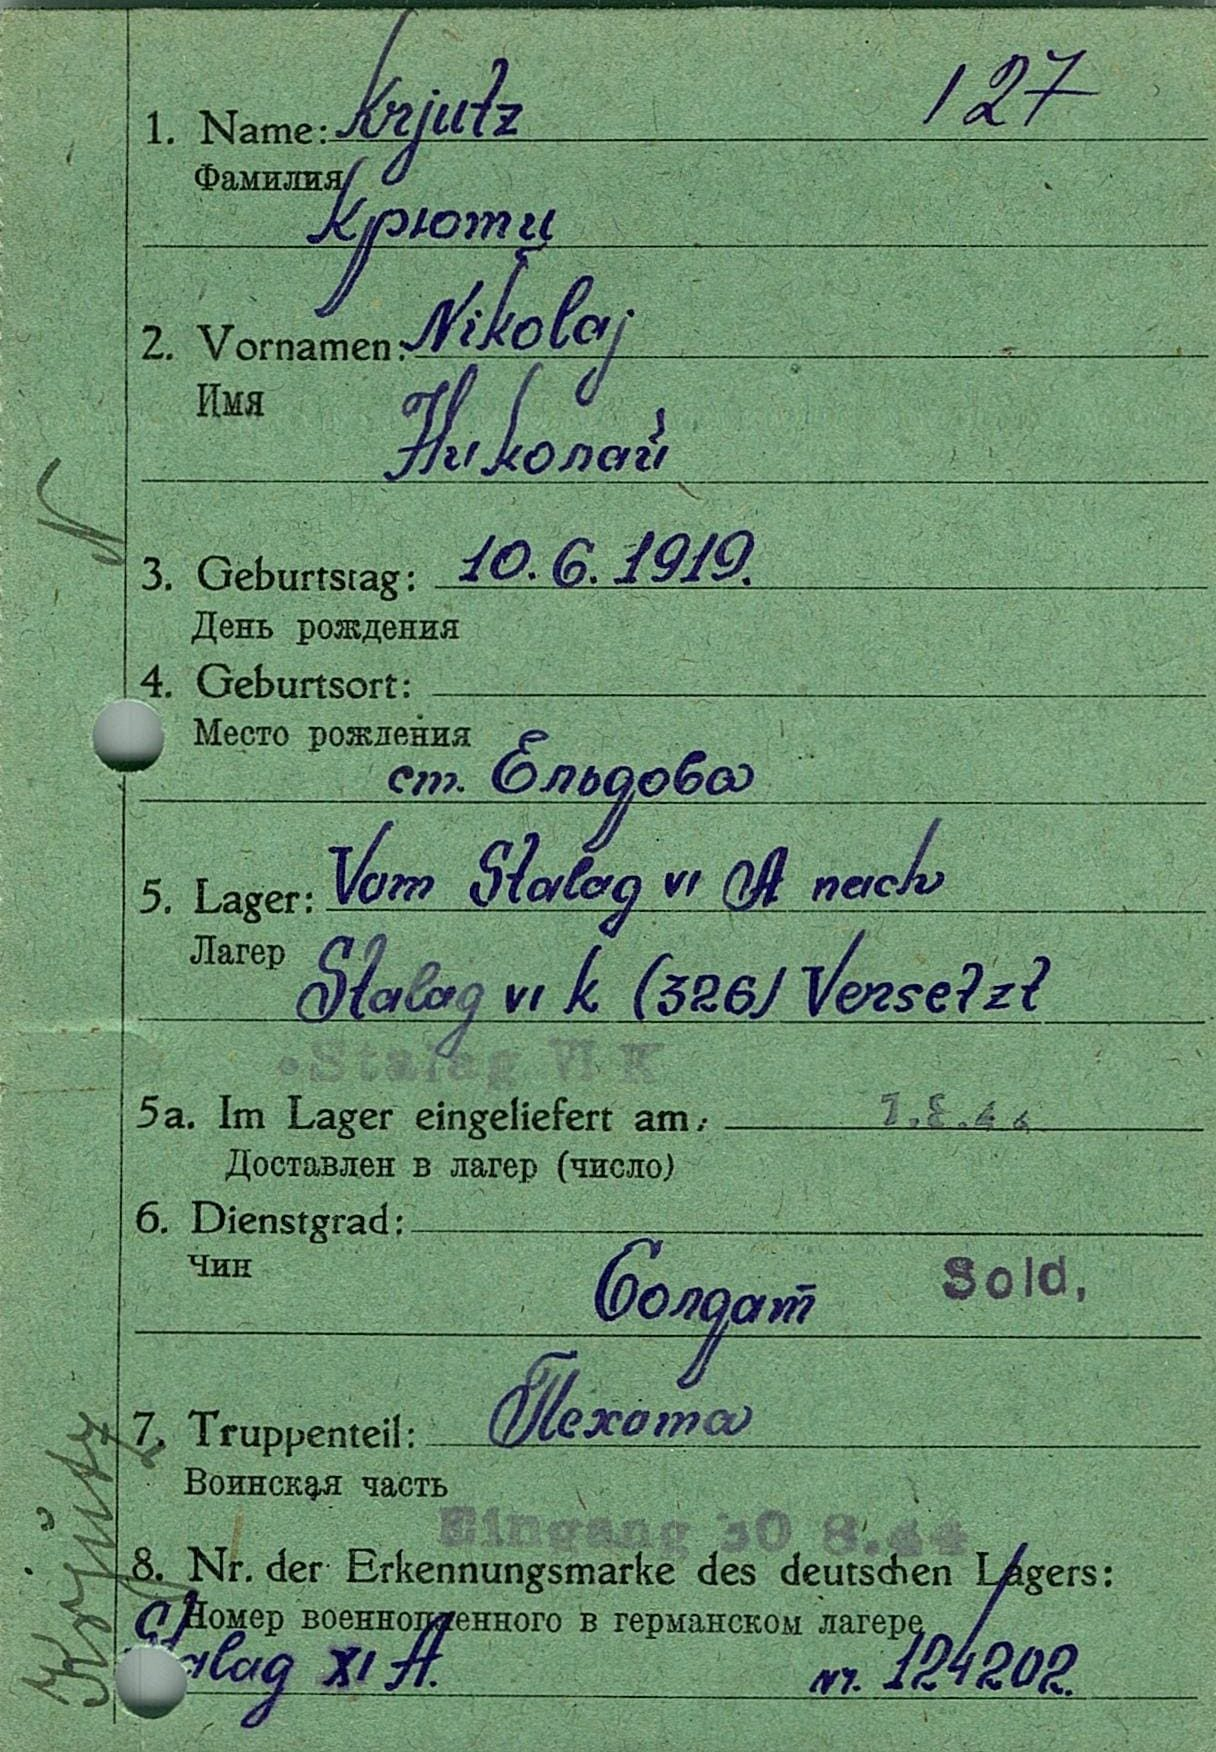 127
1. Name: Krjutz
Фамилия
Крютц
2. Vornamen: Nikolaj
Имя
Николай
N
3. Geburtstag: 10.6.1919.
День рождения
4. Geburtsort:
Место рождения
ст. Ельдова
5. Lager: Vom Stalag VI A nach
Лагер
Stalag VI K (326) Versetzt
Stalag VI K
5a. Im Lager eingeliefert am:
Доставлен в лагер (число)
6. Dienstgrad:
Чин
Солдат Sold.
7. Truppenteil: Пехота
Воинская часть
Eingang 30 8.44
8. Nr. der Erkennungsmarke des deutschen Lagers:
Номер военнопленного в германском лагере
Stalag XI A. Nr. 124202.
Krjutz